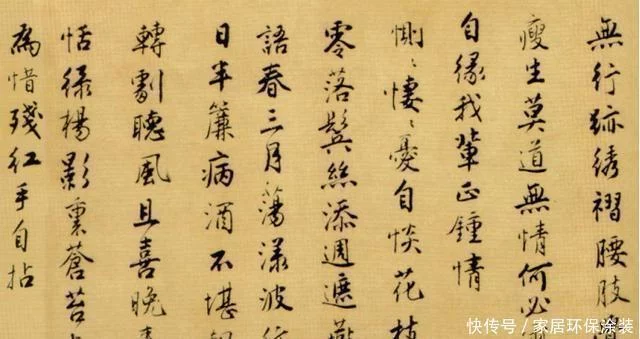 無行跡綉褶腰肢
瘦生莫道無情何必
自緣我輩正鍾情
惻〻悽〻憂自惔花枝
零落鬢絲添週遮燕
語春三月蕩漾波紋
日半簾病酒不堪
轉劇聽風且喜晚
恬綠楊影裏蒼苔
為惜殘紅手自拈
快传号／家居环保涂装